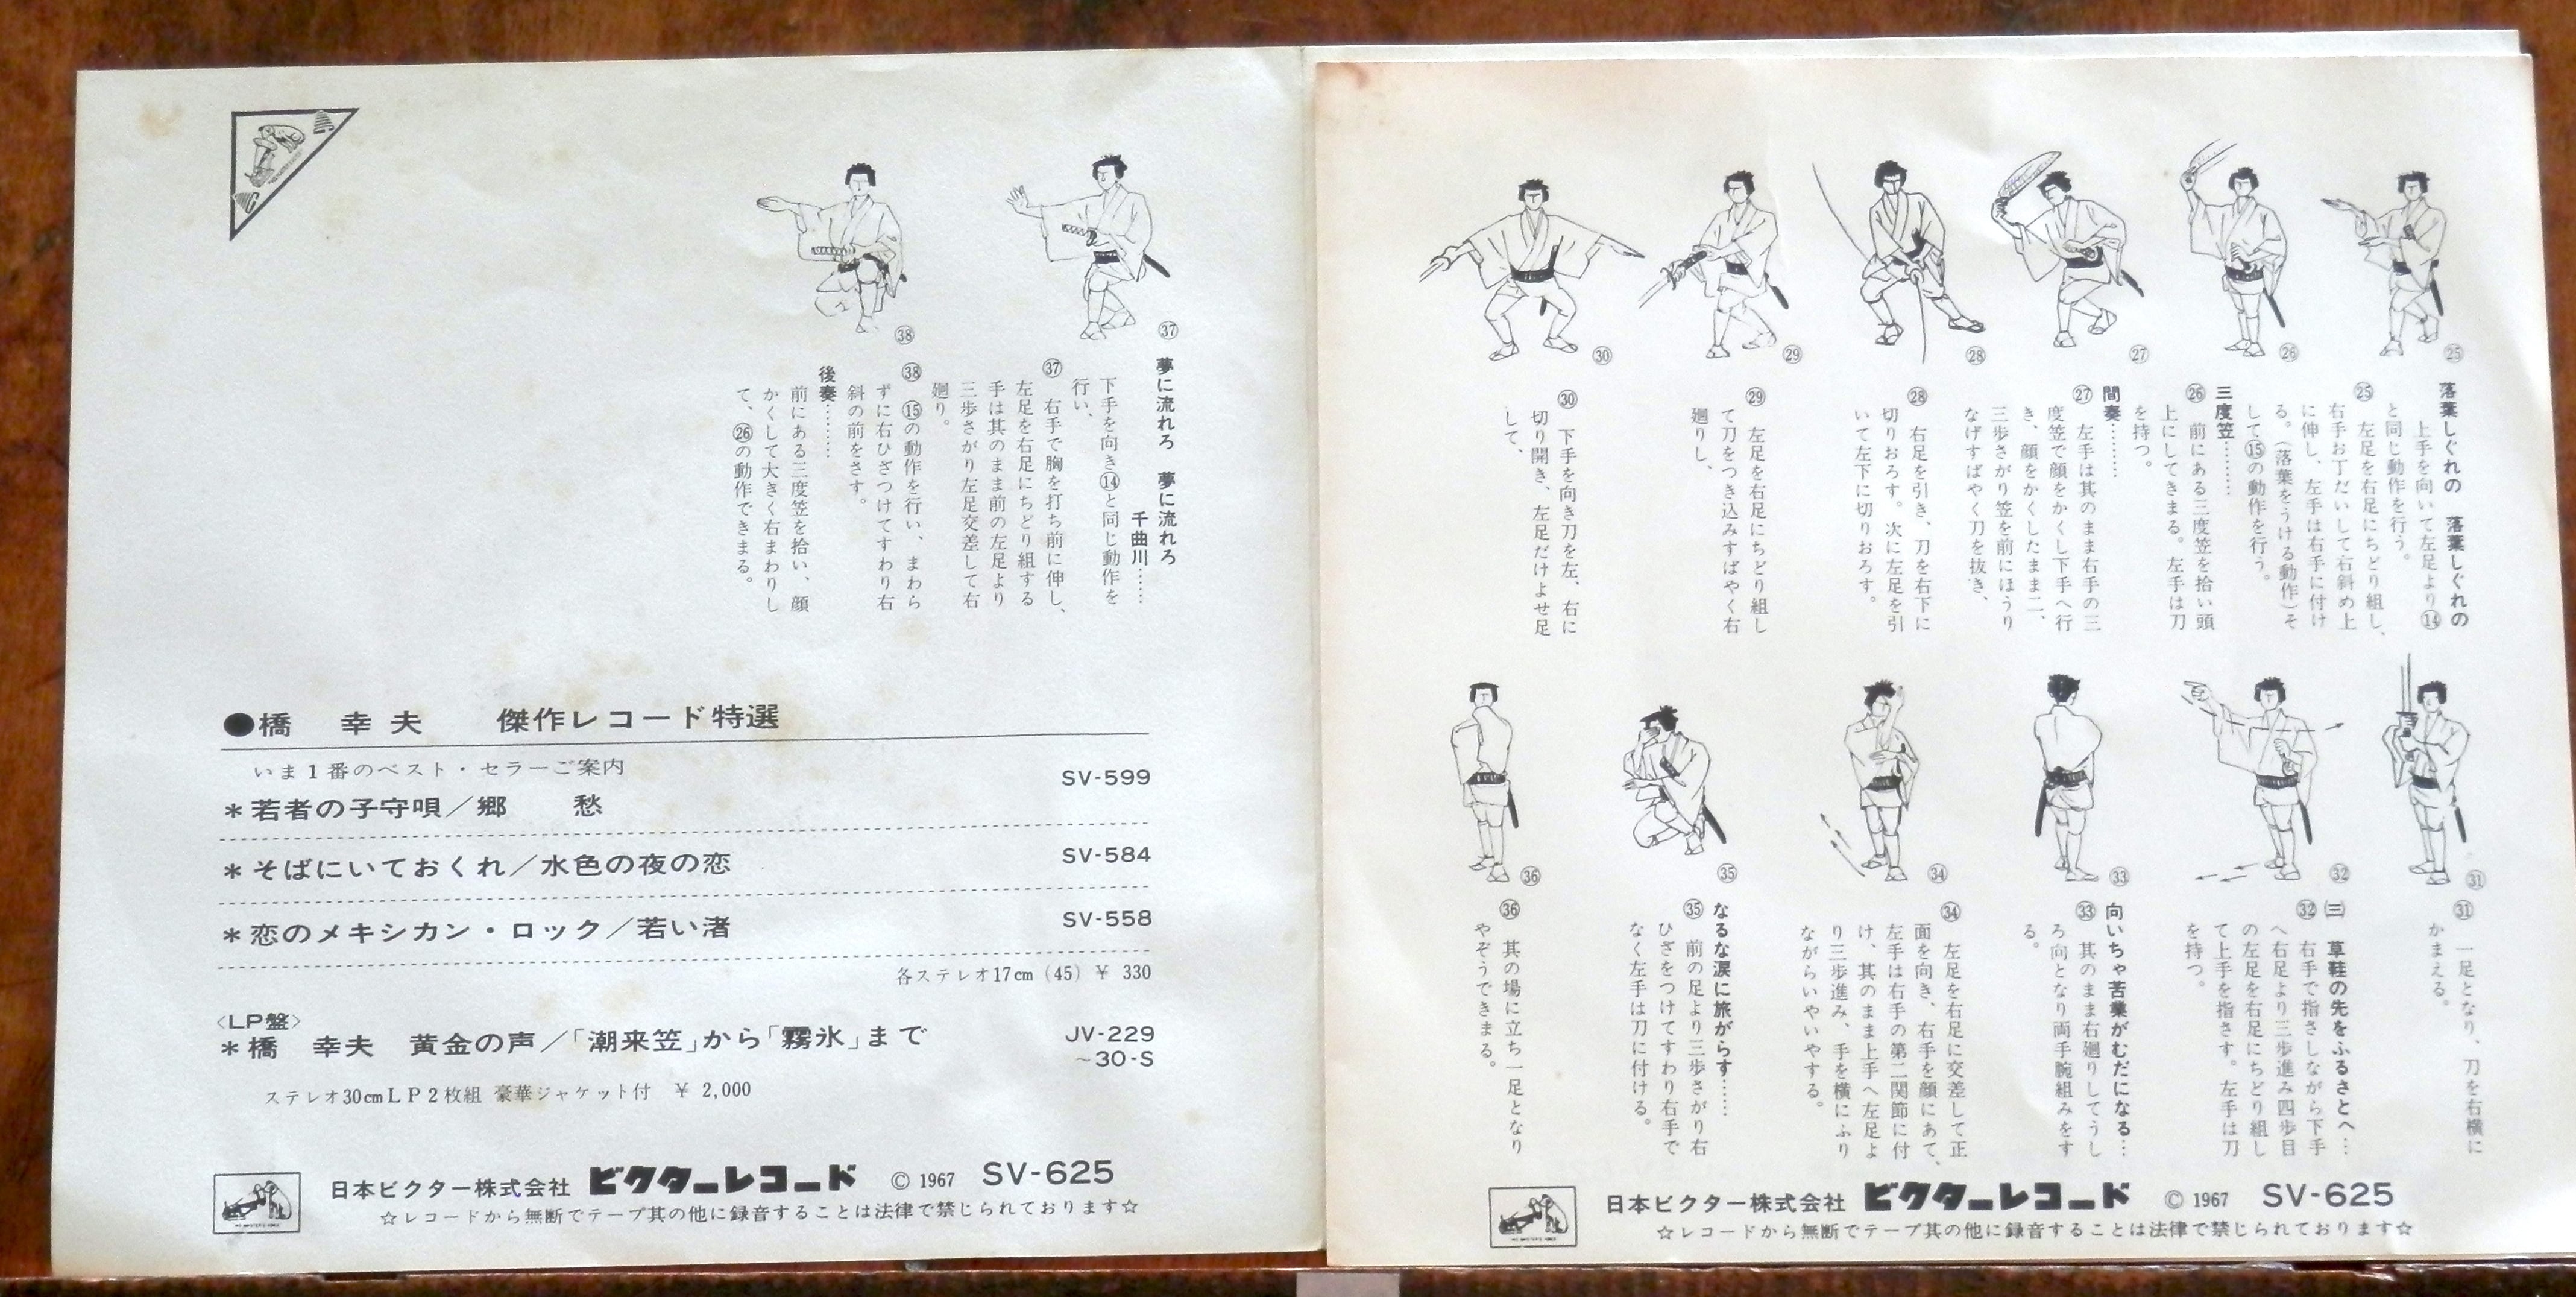 ㊲
夢に流れろ　夢に流れろ
千曲川……
下手を向き⑭と同じ動作を
行い、
㊲　右手で胸を打ち前に伸し、
左足を右足にちどり組する
手は其のまま前の左足より
三歩さがり左足交差して右
廻り。
㊳
㊳　⑮の動作を行い、まわら
ずに右ひざつけてすわり右
斜の前をさす。
後奏………
前にある三度笠を拾い、顔
かくして大きく右まわりし
て、㉖の動作できまる。
●橋　幸夫　傑作レコード特選
いま1番のベスト・セラーご案内
＊若者の子守唄／郷　愁　SV-599
＊そばにいておくれ／水色の夜の恋　SV-584
＊恋のメキシカン・ロック／若い渚　SV-558
各ステレオ17cm (45) ￥ 330
〈LP盤〉
＊橋　幸夫　黄金の声／「潮来笠」から「霧氷」まで　JV-229
～30-S
ステレオ30cmＬＰ２枚組 豪華ジャケット付　￥ 2,000
日本ビクター株式会社 ビクターレコード © 1967 SV-625
☆レコードから無断でテープ其の他に録音することは法律で禁じられております☆
㉕
落葉しぐれの　落葉しぐれの
上手を向いて左足より⑭
と同じ動作を行う。
㉕　左足を右足にちどり組し、
右手お丁だいして右斜め上
に伸し、左手は右手に付け
る。（落葉をうける動作）そ
して⑮の動作を行う。
㉖
三度笠………
㉖　前にある三度笠を拾い頭
上にしてきまる。左手は刀
を持つ。
㉗
間奏………
㉗　左手は其のまま右手の三
度笠で顔をかくし下手へ行
き、顔をかくしたまま二、
三歩さがり笠を前にほうり
なげすばやく刀を抜き、
㉘
㉘　右足を引き、刀を右下に
切りおろす。次に左足を引
いて左下に切りおろす。
㉙
㉙　左足を右足にちどり組し
て刀をつき込みすばやく右
廻りし、
㉚
㉚　下手を向き刀を左、右に
切り開き、左足だけよせ足
して、
㉛
㉛　一足となり、刀を右横に
かまえる。
㉜
㈢　草鞋の先をふるさとへ…
㉜　右手で指さしながら下手
へ右足より三歩進み四歩目
の左足を右足にちどり組し
て上手を指さす。左手は刀
を持つ。
㉝
向いちゃ苦業がむだになる…
㉝　其のまま右廻りしてうし
ろ向となり両手腕組みをす
る。
㉞
㉞　左足を右足に交差して正
面を向き、右手を顔にあて、
左手は右手の第二関節に付
け、其のまま上手へ左足よ
り三歩進み、手を横にふり
ながらいやいやする。
㉟
なるな涙に旅がらす……
㉟　前の足より三歩さがり右
ひざをつけてすわり右手で
なく左手は刀に付ける。
㊱
㊱　其の場に立ち一足となり
やぞうできまる。
日本ビクター株式会社 ビクターレコード © 1967 SV-625
☆レコードから無断でテープ其の他に録音することは法律で禁じられております☆